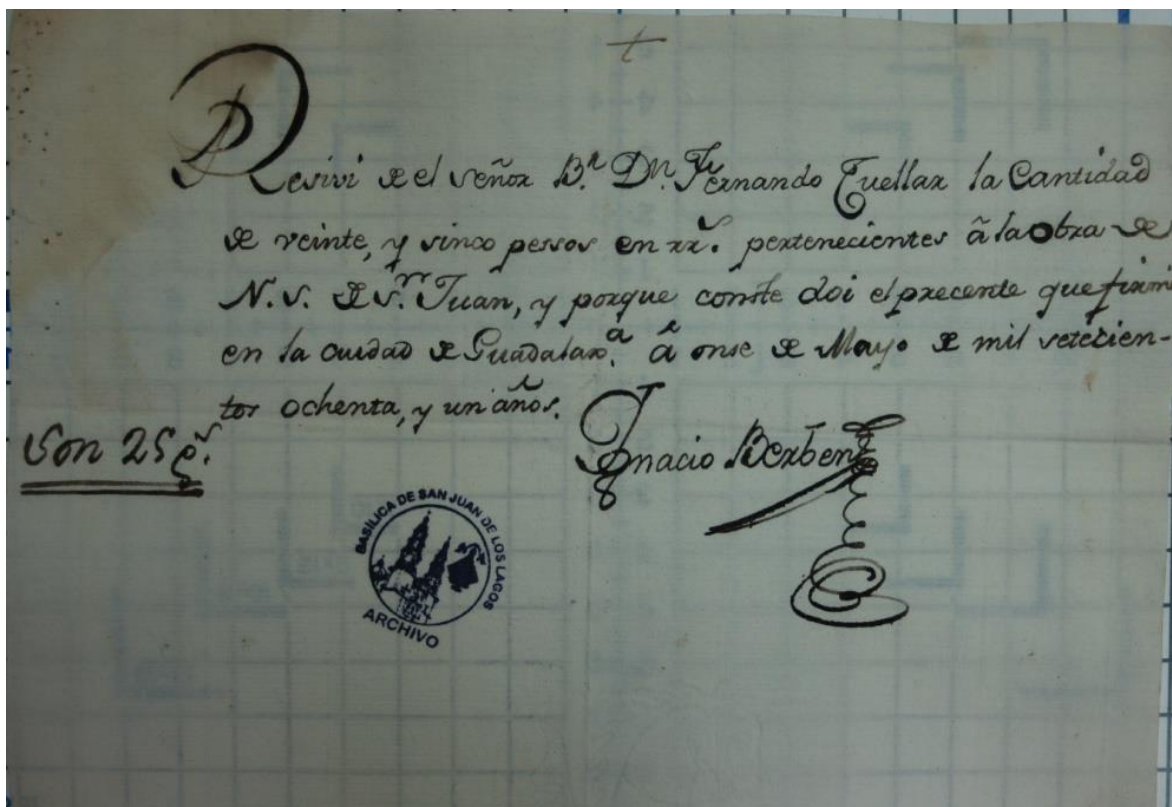 †
Resivi de el señor B.r D.n Fernando Cuellar la Cantidad
de veinte, y sinco pessos en rr.s pertenecientes â la obra de
N. S. de S.n Juan, y porque conste doi el precente que firmé
en la ciudad de Guadalax.a â onse de Mayo de mil setecien-
tos ochenta, y un años.
Son 25 p.s
Ignacio Berben
BASÍLICA DE SAN JUAN DE LOS LAGOS
ARCHIVO